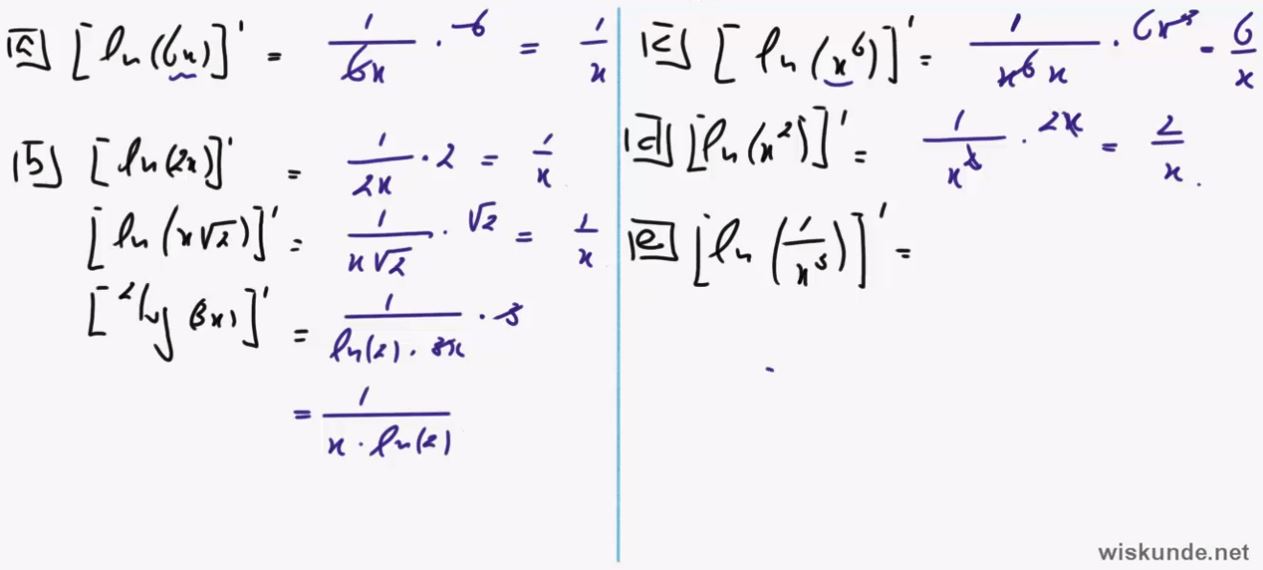 a [ln(6x)]' = 1/6x · 6 = 1/x
b [ln(2x)]' = 1/2x · 2 = 1/x
[ln(x√2)]' = 1/x√2 · √2 = 1/x
[²log(3x)]' = 1/ln(2) · 3x · 3
= 1/x · ln(2)
c [ln(x⁶)]' = 1/x⁶ x · 6x⁵ = 6/x
d [ln(x²)]' = 1/x² · 2x = 2/x.
e [ln(1/x³)]' =
wiskunde.net